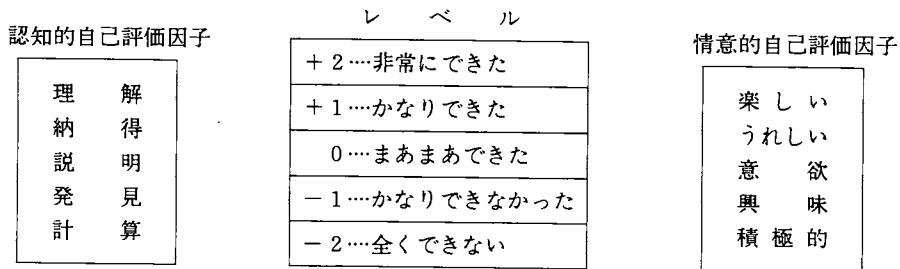 認知的自己評価因子
理解
納得
説明
発見
計算
レベル
+2‥‥非常にできた
+1‥‥かなりできた
0‥‥まあまあできた
-1‥‥かなりできなかった
-2‥‥全くできない
情意的自己評価因子
楽しい
うれしい
意欲
興味
積極的